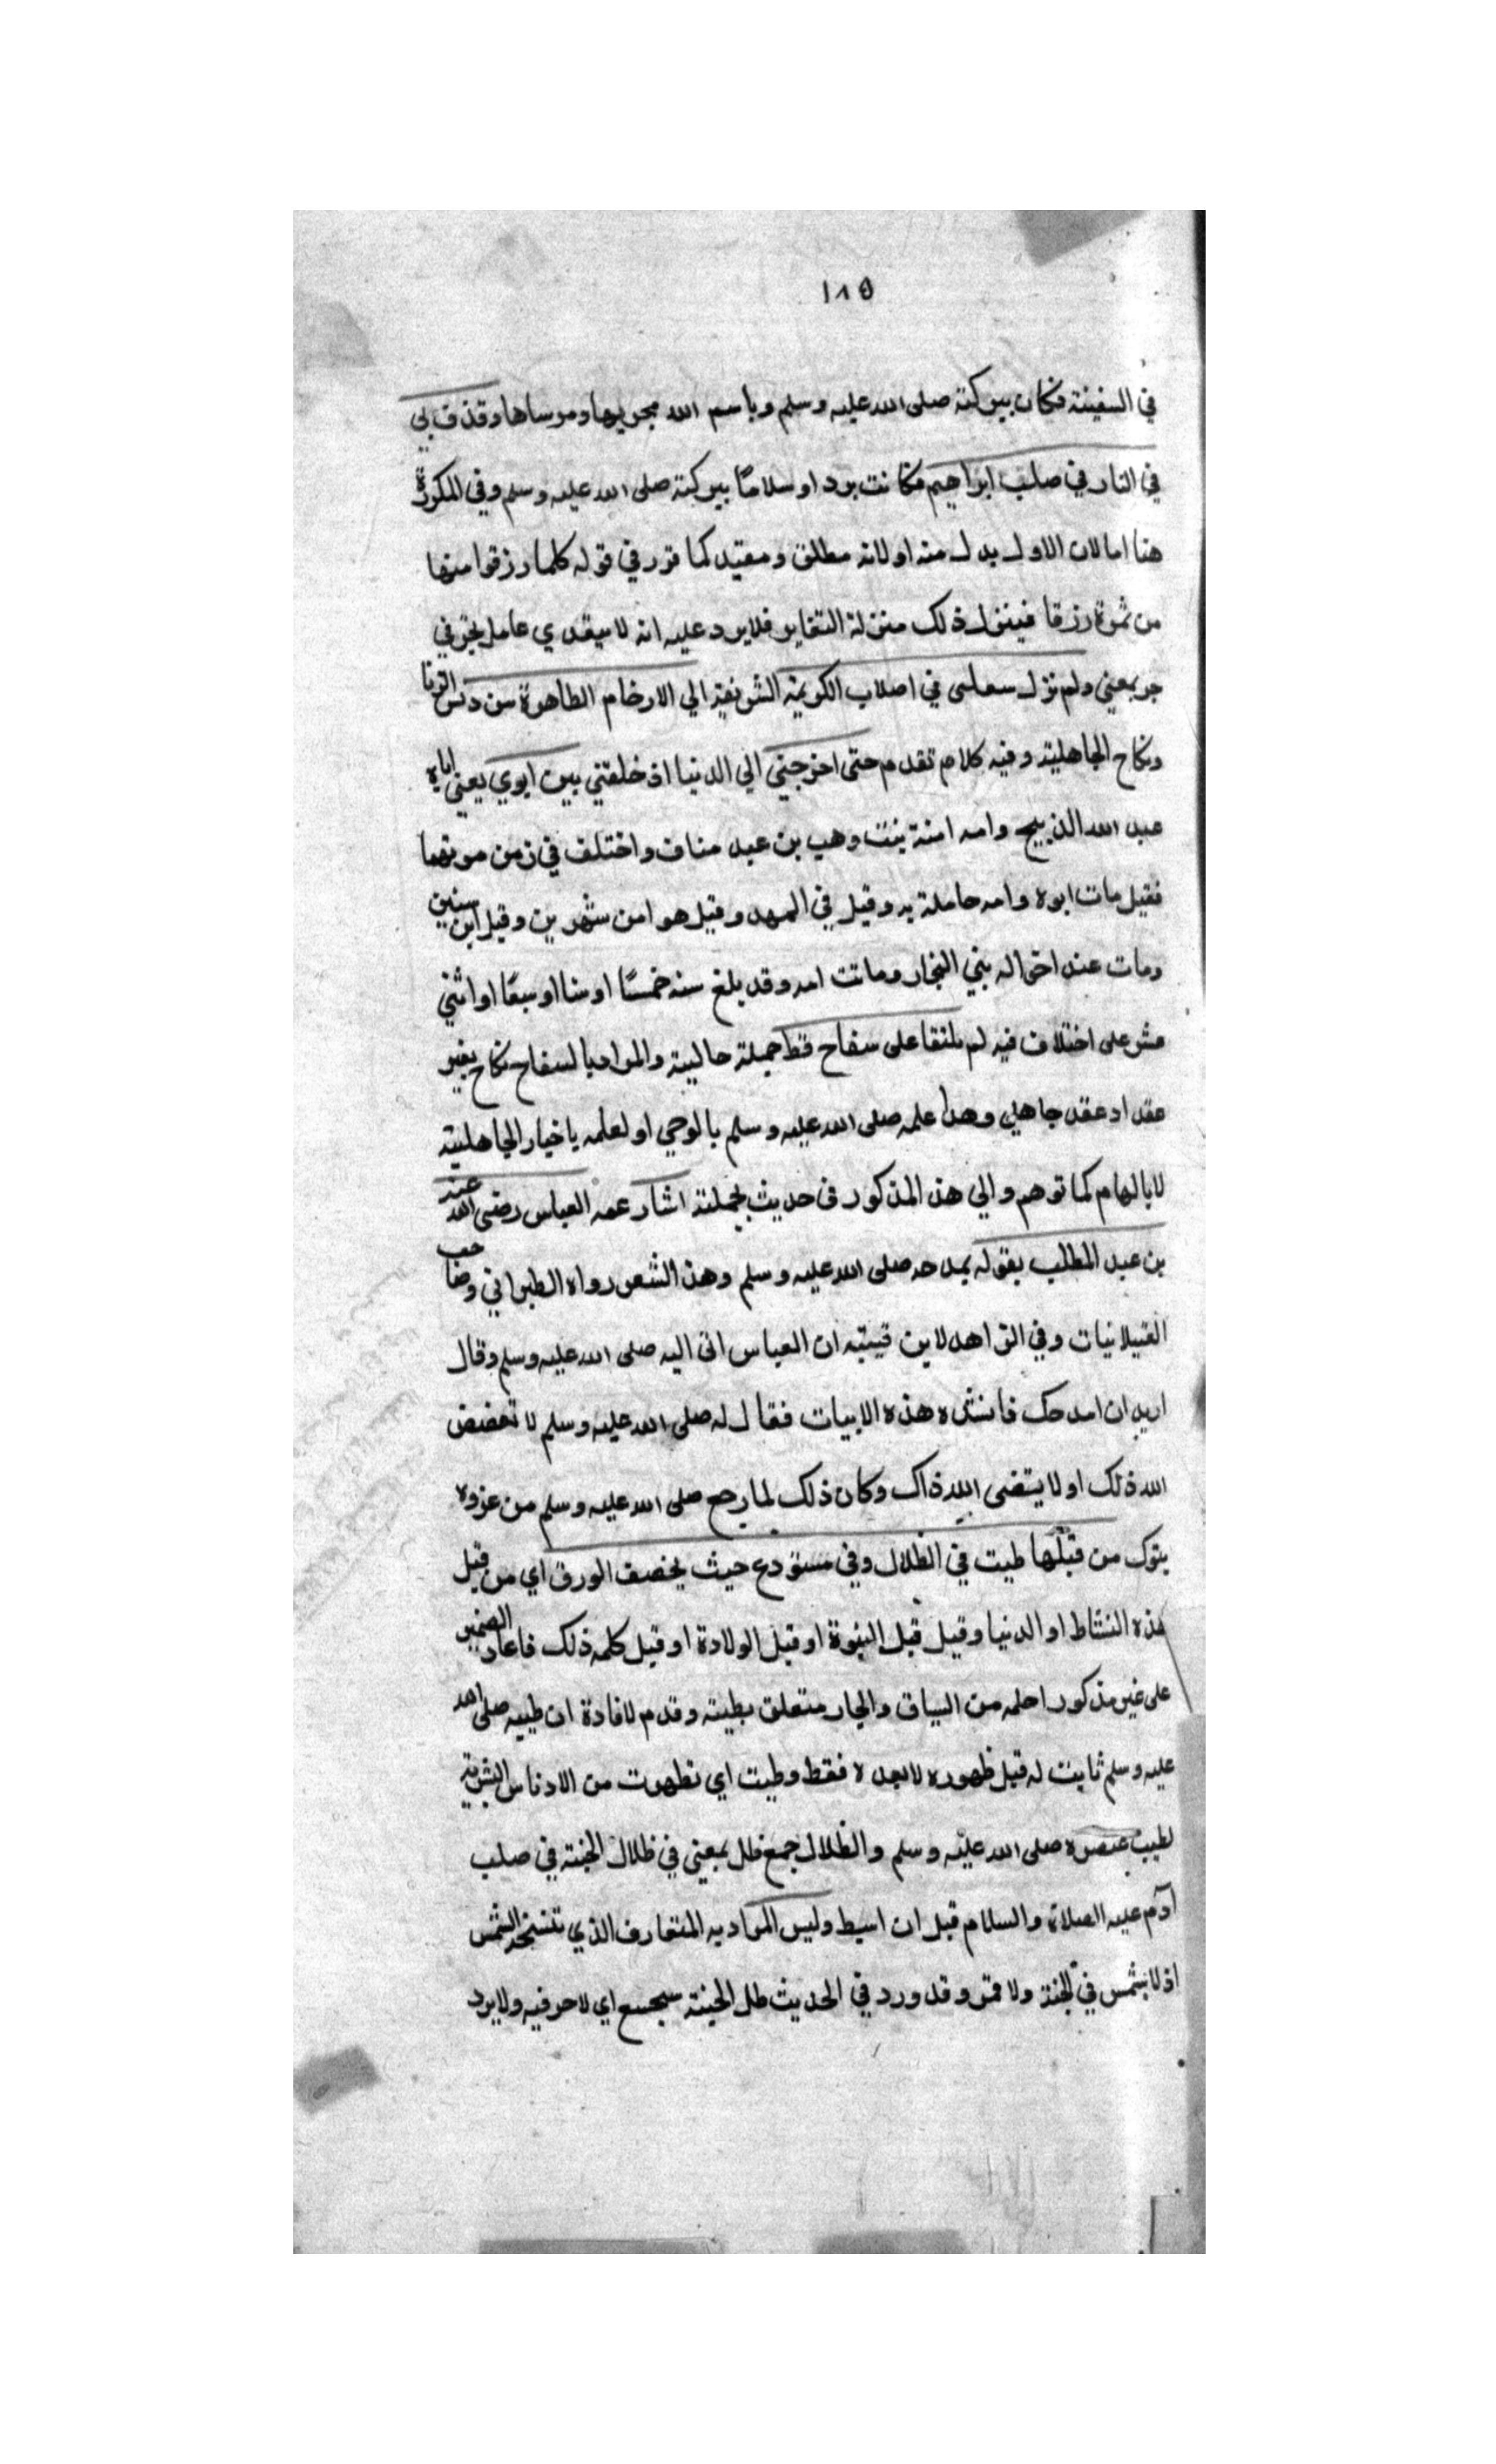 ١٨٥
في السفينة فكان ببركته صلى الله عليه وسلم وباسم الله مجريها ومرساها وقذف بي
في النار في صلب ابراهيم فكانت بردا وسلامًا ببركته صلى الله عليه وسلم وفي المكررة
هنا اما لان الاول بدل منه او لانه مطلق ومقيد كما قرر في قوله كلما رزقوا منها
من ثمرة رزقا فينزل ذلك منزلة التغاير فلا يرد عليه انه لا يتعدي عامل بحرفي
جر بمعني ولم نزل في اصلاب الكريمة الشريفة الي الارحام الطاهرة من دنس الزنا
ونكاح الجاهلية وفيه كلام تقدم حتى اخرجني الي الدنيا اذ خلقتني بين ابوي يعني اباه
عبد الله الذبيح وامه امنة بنت وهب بن عبد مناف واختلف في زمن موتهما
فقيل مات ابوه وامه حاملة به وقيل في المهد وقيل هو امن شهرين وقيل ابن سنين
ومات عند اخواله بني النجار وماتت امه وقد بلغ سنه خمسًا او ستا او سبعًا او اثني
عشر على اختلاف فيه لم يلتقا على سفاح قط جملة حالية والمراد بالسفاح نكاح بغير
عقد او عقد جاهلي وهذا علمه صلى الله عليه وسلم بالوحي او لعلمه باخبار الجاهلية
لا بالهام كما توهم والي هذ المذكور في حديث بجملته اشار عمه العباس رضي الله عنه
بن عبد المطلب بقوله يمدحه صلى الله عليه وسلم وهذ الشعر رواه الطبراني وصاحب
الغيلانيات وفي الزاهد لابن قيبته ان العباس اتى اليه صلى الله عليه وسلم وقال
اريد ان امدحك فانشده هذه الابيات فقال له صلى الله عليه وسلم لا تعضض
الله ذلك او لا يتفضى الله ذاك وكان ذلك لما رجع صلى الله عليه وسلم من غزوه
بتوك من قبلها طبت في الظلال وفي مستودع حيث يخصف الورق اي من قبل
هذه النشاط او الدنيا وقيل قبل النبوة او قبل الولادة او قبل كلمه ذلك فاعاد الضمير
على غير مذكور احلمه من السياق والجار متعلق بطبته وقدم لافادة ان طيبه صلى الله
عليه وسلم ثابت له قبل ظهوره لا بعده فقط وطبت اي تطهرت من الادناس البشرية
لطيب عنصره صلى الله عليه وسلم والظلال جمع ظل بمعني في ظلال الجنة في صلب
آدم عليه الصلاة والسلام قبل ان اهبط وليس المراد به المتعارف الذي تنسخه الشمس
اذ لا شمس في الجنة ولا قمر وقد ورد في الحديث ظل الجنة سجسج اي لا حر فيه ولا برد